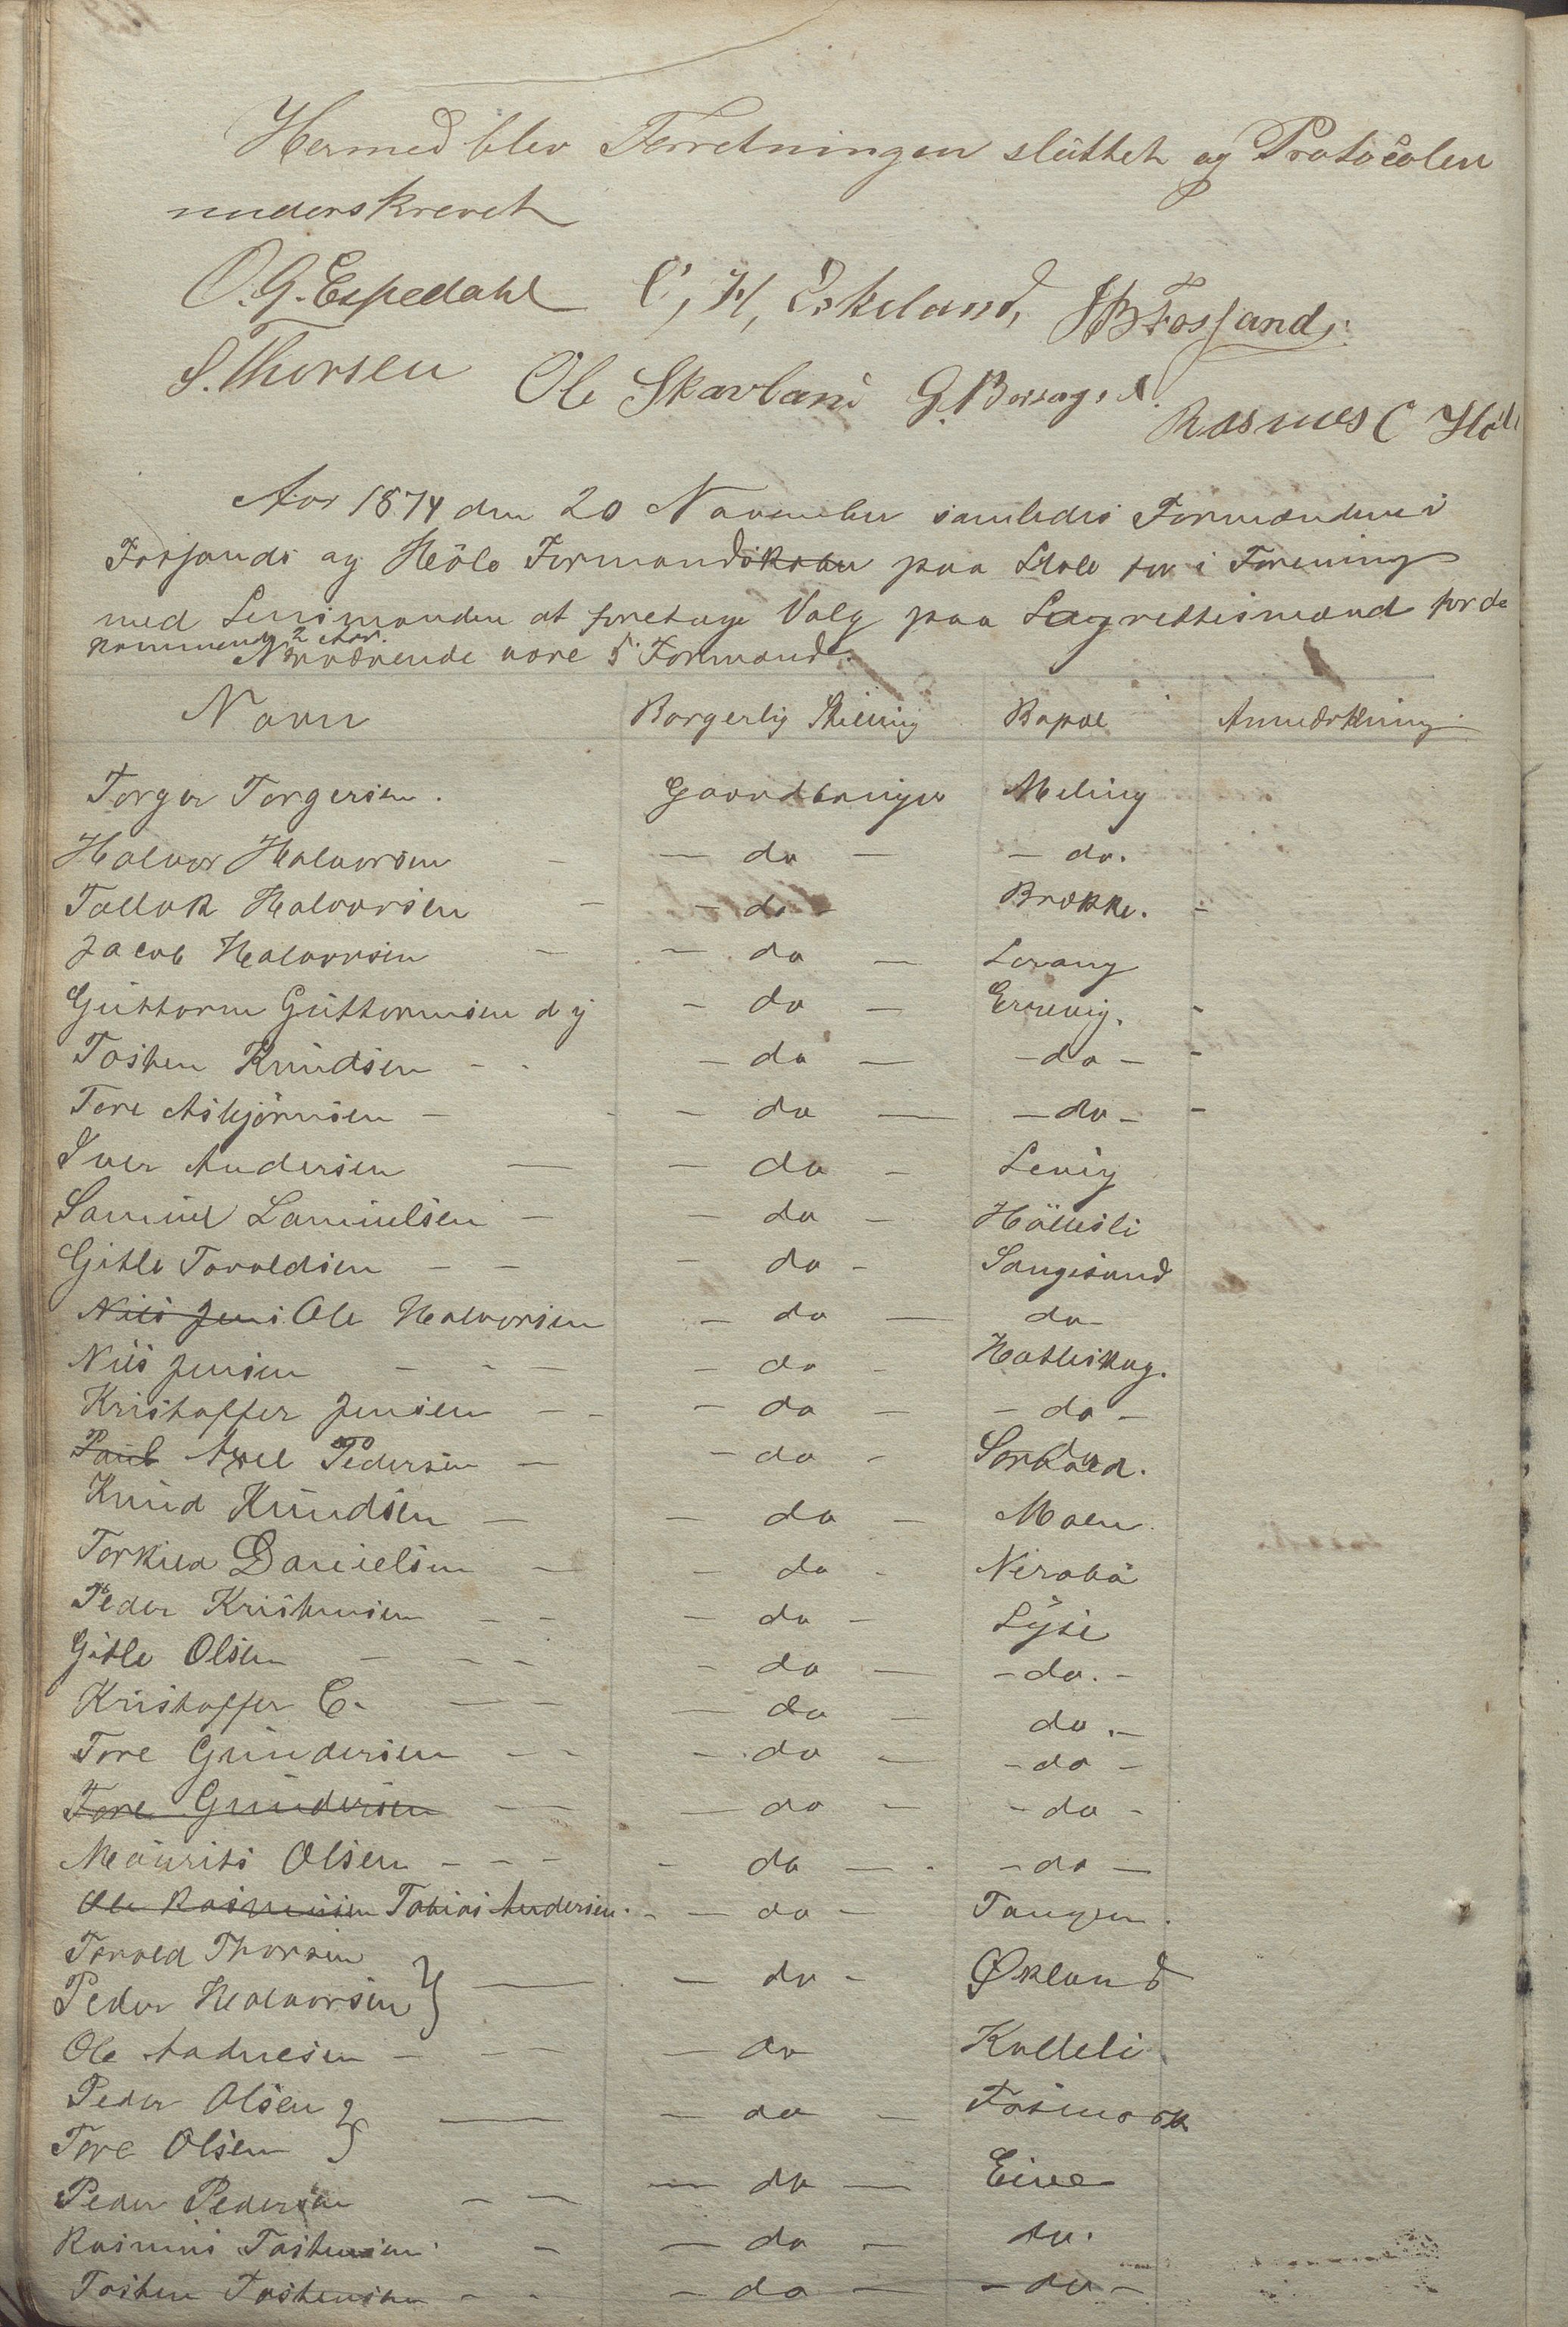 Hermed blev Forretningen sluttet og Protocolen
underskrevet
O. G. Espedahl C, H, Eskeland, Fossand.
S. Thorsen Ole Skavland G. Rasmus C
Aar 1874 den 20 November samledes Formændene i
Fossands og Höle Formandskaber paa for i Forening
med Lensmanden at foretage Valg paa Lagrettesmænd for de
kommende 2 Aar.
Nærværende vare 5 Formænd.
Navn Borgerlig Stilling Bopæl Anmærkning
Torger Torgersen. Gaardbruger Meling
Halvor Halvorsen - - do - - do.
Tallak Halvorsen - - do - Brække. -
Jacob Halvorsen - - do - Lerang
Guttorm Guttormsen d y - do - Errevig. -
Tosten Knudsen - - - do - - do - -
Tore Asbjörnsen - - - do - - do - -
Iver Andersen - - do - Levig
Samuel Samuelsen - - do - Höllesli
Gitle Toroldsen - - - do - Songesand
Nils Jens. Ole Halvorsen - do - do
Nils Jensen - - - - do - Hatleskog.
Kristoffer Jensen - - - do - - do -
Paul Axel Pedersen - - do -
Knud Knudsen - - do - Moen
Torkild Danielsen - - do - Nerabö
Peder Kristensen - - - do - Lyse
Gitle Olsen - - - - do - - do. -
Kristoffer C. - - - do - do. -
Tore Gundersen - - - do - - do -
Tore Gundersen - - do - - do -
Maurits Olsen - - - - do - . - do -
Ole Rasmussen Tobias Andersen. - - do - Tangen.
Torold Thorsen
Peder Halvorsen } - - do - Økland
Ole Andresen - - - - do Kalleli
Peder Olsen
Tore Olsen } - - do - Fosmork
Peder Pedersen - - - do - Eiane
Rasmus Tostensen - - do - do.
Tosten Tostensen - - - do - - do -